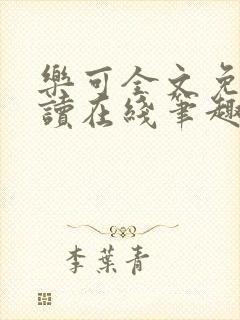 樂可全文免
讀在綫筆趣
李葉青